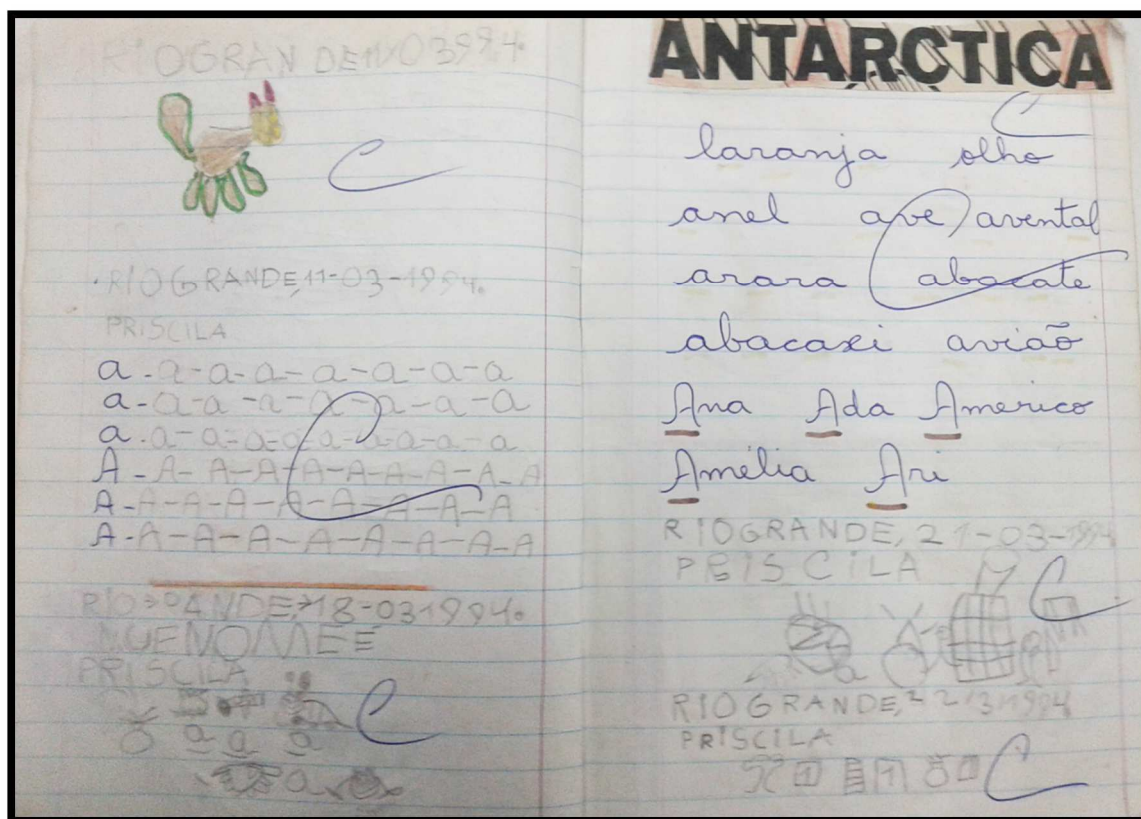 RIOGRANDE 11/03994.
C
RIOGRANDE, 11-03-1994.
PRISCILA
a-a-a-a-a-a-a-a
a-a-a-a-a-a-a-a
a.a-a-a-a-a-a-a-a-a
A-A-A-A-A-A-A-A-A-A
A-A-A-A-A-A-A-A-A
A-A-A-A-A-A-A-A-A
C
18-031994.
PRISCILA
C
a a a
a
ANTARCTICA
C
laranja olho
anel ave avental
arara abacate
C
abacaxi avião
Ana Ada Americo
Amélia Ari
RIOGRANDE, 21-03-1994
PRISCILA
C
a
RIOGRANDE, 22/3/1994
PRISCILA
C